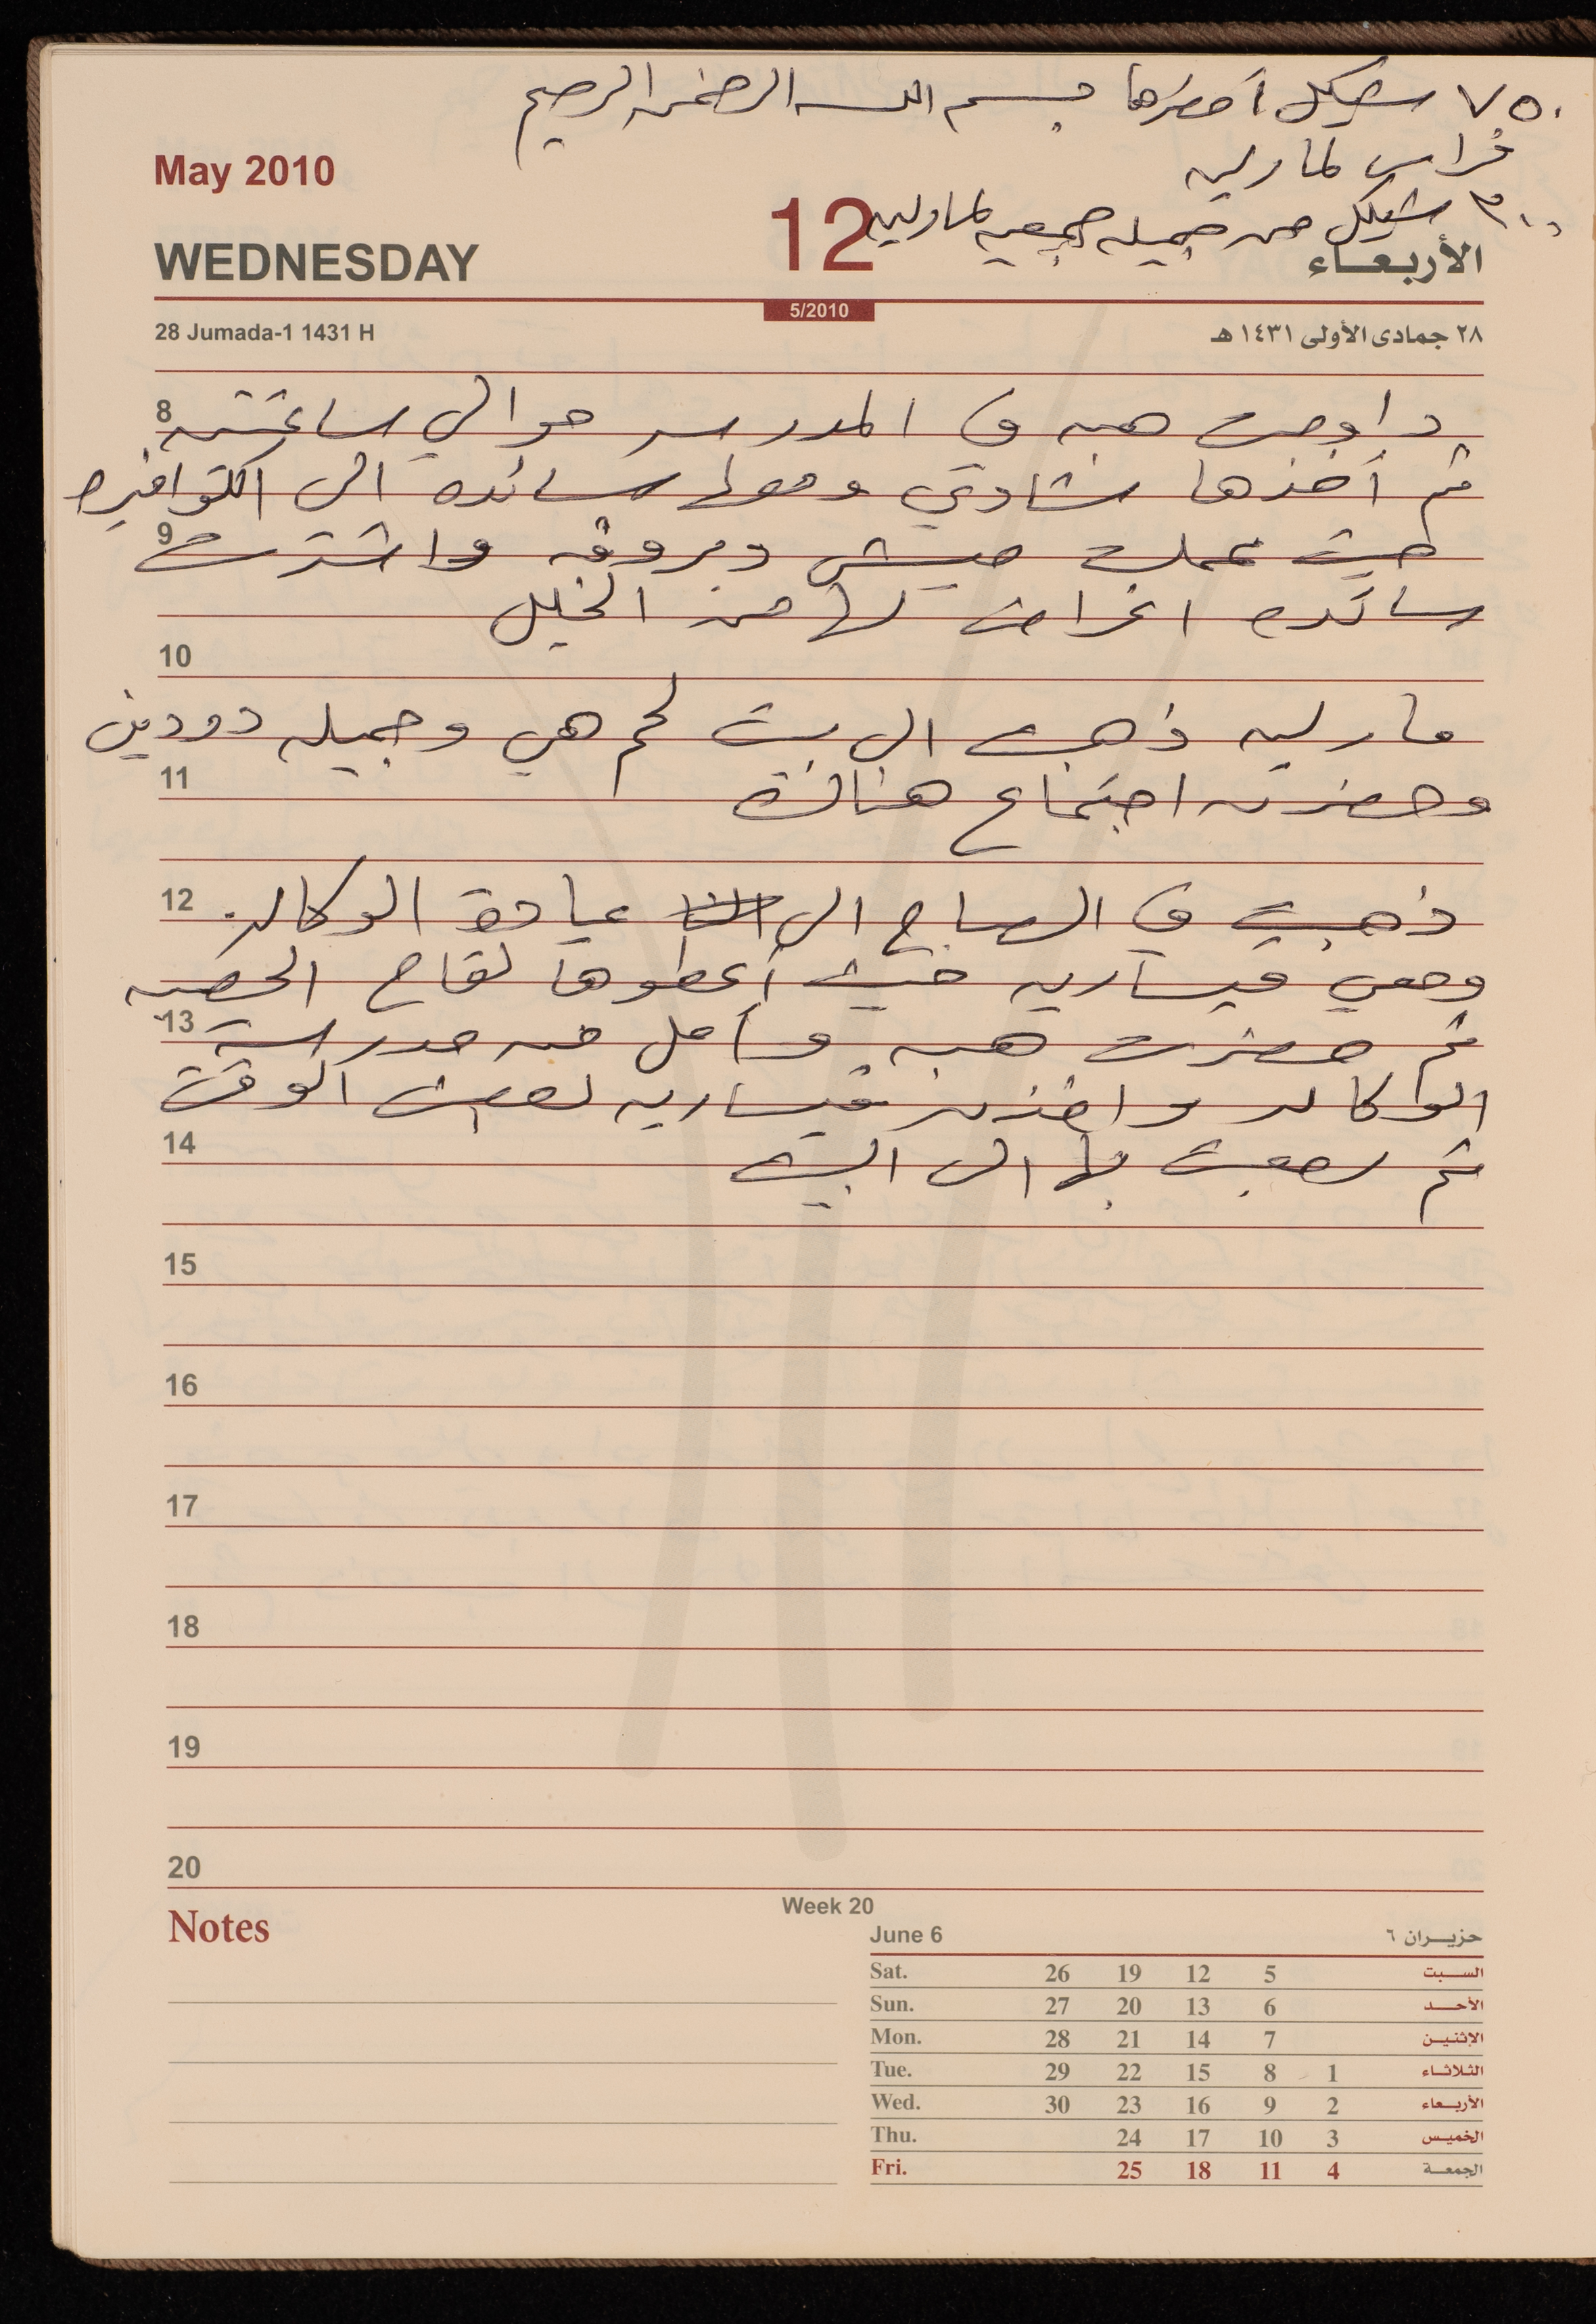 ٧٥٠ شيكل أحضرها بسم الله الرحمن الرحيم
فراس لمارلين
May 2010
٣٠٠ شيكل من جميله جمعيه لمارلين
12
WEDNESDAY
الأربعاء
5/2010
28 Jumada-1 1431 H
٢٨ جمادى الأولى ١٤٣١ هـ
8 داومت هبه في المدرسه حوالي ساعتين
ثم أخذها شادي ومعها سائده الى الكوافيره
9 حيث عملت ميش ومروقه واشترت
سائده اغراض لها من الخليل
10
مارلين ذهبت الى بيت لحم هي وجميله دودين
11 وحضرن اجتماع هناك
12 ذهبت في الصباح الى عيادة الوكاله
ومعي قيساريه حيث أعطوها لقاح الحصبه
13 ثم حضرت هبه وأمل من مدرسة
الوكاله واخذن قيساريه لبعض الوقت
14 ثم رجعت بها الى البيت
15
16
17
18
19
20
Notes
Week 20
June 6 حزيران ٦
Sat. 26 19 12 5 السبت
Sun. 27 20 13 6 الأحد
Mon. 28 21 14 7 الإثنين
Tue. 29 22 15 8 1 الثلاثاء
Wed. 30 23 16 9 2 الأربعاء
Thu. 24 17 10 3 الخميس
Fri. 25 18 11 4 الجمعة